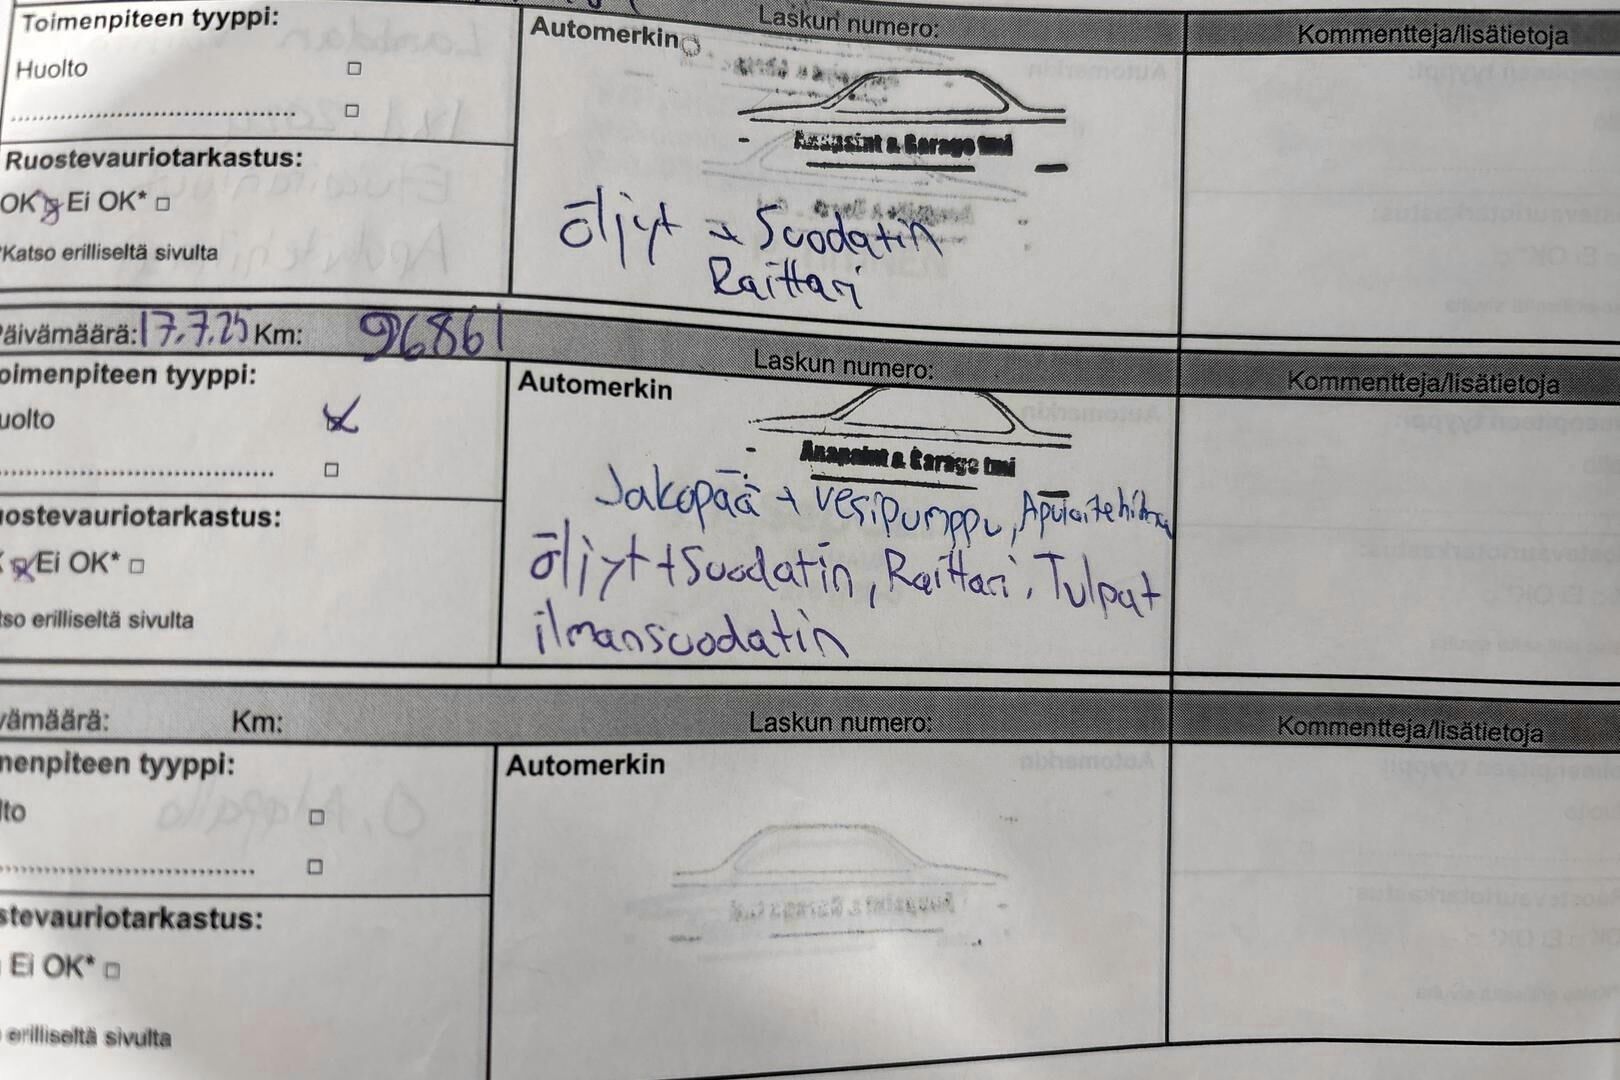 Toimenpiteen tyyppi:
Laskun numero:
Kommentteja/lisätietoja
Automerkin
Huolto
Anapaint & Garage tmi
Ruostevauriotarkastus:
OK Ei OK*
*Katso erilliseltä sivulta
öljyt + Suodatin
Raittari
Päivämäärä: 17.7.25 Km: 96861
Laskun numero:
Kommentteja/lisätietoja
oimenpiteen tyyppi:
Automerkin
uolto
Anapaint & Garage tmi
Jakopää + vesipumppu, Apulaitehihna
uostevauriotarkastus:
Ei OK*
öljyt + Suodatin, Raittari, Tulpat
tso erilliseltä sivulta
ilmansuodatin
vämäärä: Km:
Laskun numero:
Kommentteja/lisätietoja
nenpiteen tyyppi:
Automerkin
lto
stevauriotarkastus:
Ei OK*
erilliseltä sivulta